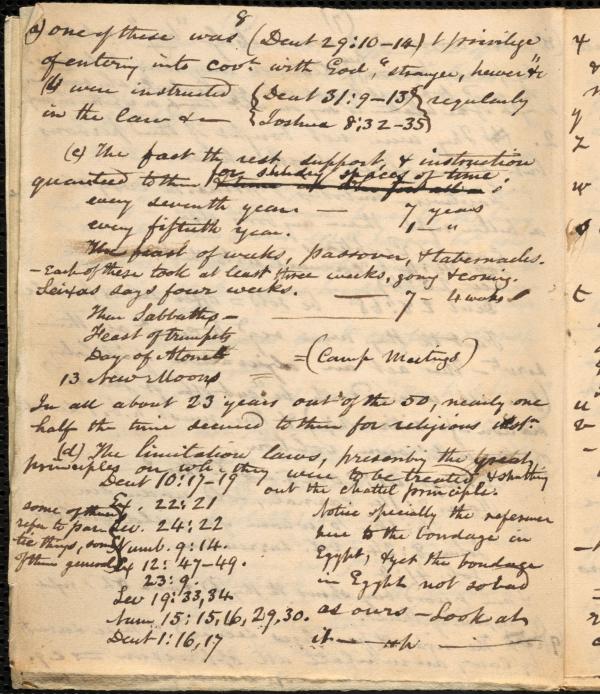 8
(a) one of these was (Deut 29:10–14) t privilege
of entering into covt. with God, "stranger, hewer" &c
(b) were instructed {Deut 31:9–13} regularly
in the law &c — {Joshua 8:32–35}
(c) The fact th rest, support, & instruction
guaranteed to them for sundry spaces of time :
every seventh year. — 7 years
every fiftieth year. 1 – "
The feast of weeks, passover, & tabernacles.
– Each of these took at least three weeks, going & coming.
says four weeks. — 7 – 4 weeks
Their Sabbaths –
Feast of trumpets
Day of Atonet = (Camp Meetings)
13 New Moons
In all about 23 years out of the 50, nearly one
half the time secured to them for religious instn
(d) The limitation laws, prescribing the great
principles on wh. they were to be treated & shutting
out the chattel principle.
Deut 10:17–19
Ex. 22:21
Lev. 24:22
Numb. 9:14.
Ex 12:47–49.
23:9.
Lev 19:33,34
Num 15:15,16,29,30.
Deut 1:16,17
some of these
refer to par
things, some
of them general
Notice specially the reference
here to the bondage in
Egypt, & yet the bondage
in Egypt not so bad
as ours – Look at
it —